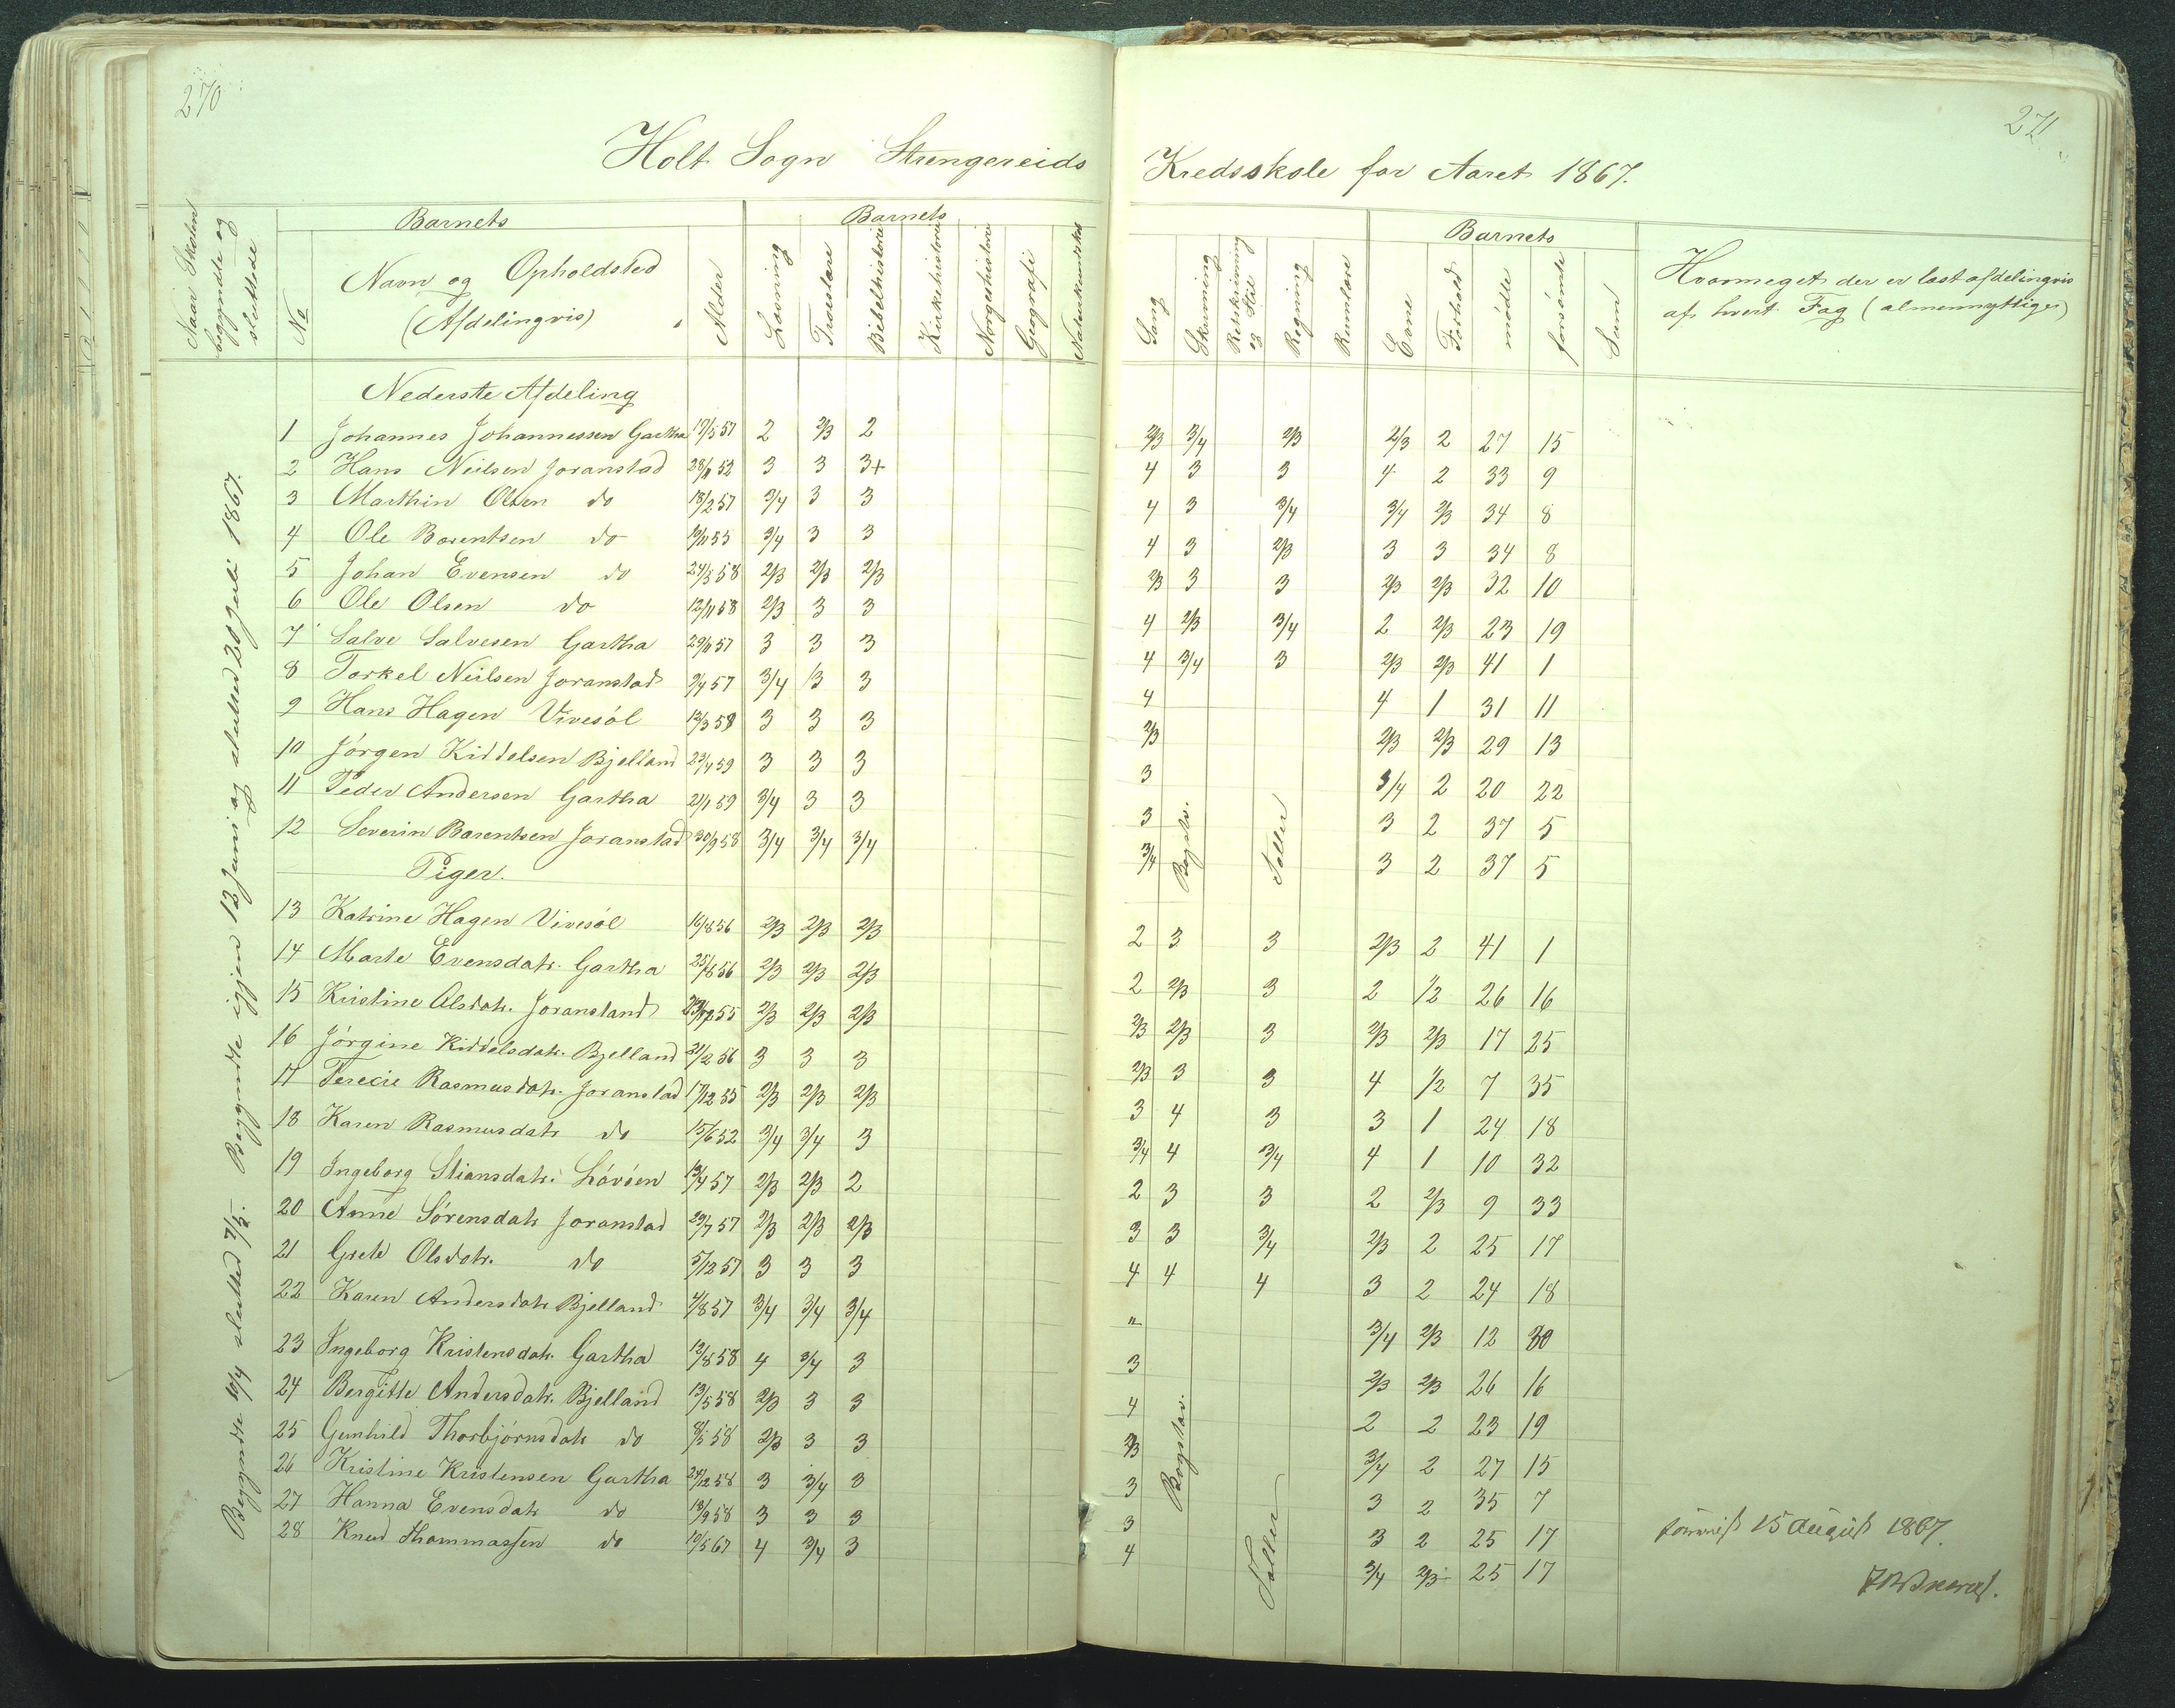 270
271
Holt Sogn Strengereids Kredsskole for Aaret 1867.
Naar Skolen begyndte og sluttede
No
Barnets
Navn og Opholdsted
(Afdelingvis)
Alder
Barnets
Læsning
Troeslære
Bibelhistorie
Kirkehistorie
Norgeshistorie
Geografi
Naturkundskab
Sang
Skrivning
Retskrivning og Stil
Regning
Rumlære
Barnets
Evne
Forhold
mødte
forsømte
Sum
Hvormeget der er læst afdelingvis
af hvert Fag (almennyttige)
Begyndte 10/4 sluttede 7/5. Begyndte igjen 13 Juni og sluttede 20 Juli 1867.
Nederste Afdeling
1 Johannes Johannessen Gartha 17/5 57 2 2/3 2 2/3 3/4 2/3 2/3 2 27 15
2 Hans Neilsen Joranstad 28/11 52 3 3 3+ 4 3 3 4 2 33 9
3 Marthin Olsen do 18/2 57 3/4 3 3 4 3 3/4 3/4 2/3 34 8
4 Ole Barentsen do 19/11 55 3/4 3 3 4 3 2/3 3 3 34 8
5 Johan Evensen do 24/5 58 2/3 2/3 2/3 2/3 3 3 2/3 2/3 32 10
6 Ole Olsen do 12/11 58 2/3 3 3 4 2/3 3/4 2 2/3 23 19
7 Salve Salvesen Gartha 29/6 57 3 3 3 4 3/4 3 2/3 2/3 41 1
8 Torkel Neilsen Joranstad 9/4 57 3/4 3 3 4 4 1 31 11
9 Hans Hagen Vivesøl 12/3 58 3 3 3 2/3 2/3 2/3 29 13
10 Jørgen Kiddelsen Bjelland 23/4 59 3 3 3 3 3/4 2 20 22
11 Peder Andersen Gartha 21/1 59 3/4 3 3 3 3 2 37 5
12 Severin Barentsen Joranstad 30/9 58 3/4 3/4 3/4 3/4 Bogstv. Taller 3 2 37 5
Piger.
13 Katrine Hagen Vivesøl 16/8 56 2/3 2/3 2/3 2 3 3 2/3 2 41 1
14 Marte Evensdatr. Gartha 25/8 56 2/3 2/3 2/3 2 2/3 3 2 1/2 26 16
15 Kristine Alsdatr. Joranstand 55 2/3 2/3 2/3 2/3 2/3 3 2/3 2/3 17 25
16 Jørgine Kiddelsdatr. Bjelland 21/2 56 3 3 3 2/3 3 3 4 1/2 7 35
17 Terecie Rasmusdatr. Joranstad 17/12 55 2/3 2/3 2/3 3 4 3 3 1 24 18
18 Karen Rasmusdatr do 15/6 52 3/4 3/4 3 3/4 4 3/4 4 1 10 32
19 Ingeborg Stiansdatr. Løvøen 13/4 57 2/3 2/3 2 2 3 3 2 2/3 9 33
20 Anne Sørensdatr Joranstad 29/7 57 2/3 2/3 2/3 3 3 3/4 2/3 2 25 17
21 Grete Olsdatr. do 5/12 57 3 3 3 4 4 4 3 2 24 18
22 Karen Andersdatr Bjelland 4/8 57 3/4 3/4 3/4 " 3/4 2/3 12 30
23 Ingeborg Kristensdatr. Gartha 13/8 58 4 3/4 3 3 2/3 2/3 26 16
24 Bergitte Andersdatr. Bjelland 13/5 58 2/3 3 3 4 2 2 23 19
25 Gunhild Thorbjørnsdatr do 8/5 58 2/3 3 3 2/3 3/4 2 27 15
26 Kristine Kristensen Gartha 24/12 58 3 3/4 3 3 3 2 35 7
27 Hanna Evensdatr do 18/9 58 3 3 3 3 3 2 25 17
28 Knud Thommassen do 10/5 67 4 3/4 3 4 3/4 2/3 25 17
Bogstav.
Taller
15 August 1867.